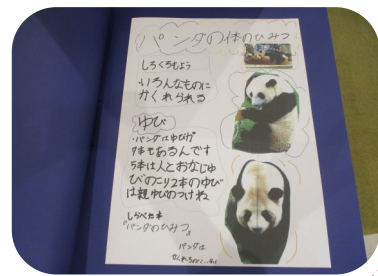 パンダの体のひみつ
しろくろもよう
いろんなものに
かくれられる
ゆび
・パンダはゆびが
7本もあるんです
5本は人とおなじゆ
びのこり2本のゆび
は親ゆびのつけね
しらべた本
『パンダのひみつ』
パンダは